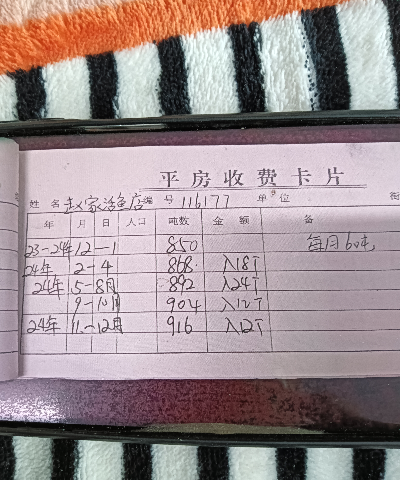 平房收费卡片
姓名 赵家活鱼店 编号 116177 单位 街
年 月 日 人口 吨数 金额 备
23-24年 12-1 850 每月6吨
24年 2-4 868 入18T
24年 5-8月 892 入24T
9-10月 904 入12T
24年 11-12月 916 入12T